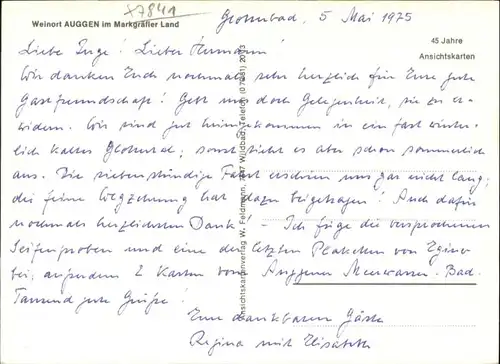 x7841
Weinort AUGGEN im Markgräfler Land
Grötzbad, 5 Mai 1975
45 Jahre
Ansichtskarten
Liebe Inge! Lieber Hermann!
Wir danken Euch nochmals sehr herzlich für Eure gute
Gastfreundschaft! Gebt uns doch Gelegenheit, sie zu er-
widern. Wir sind gut heimgekommen in ein fast winter-
lich kaltes; sonst sieht es aber schon sommerlich
aus. Die siebenstündige Fahrt erschien uns gar nicht lang;
die feine Wegzehrung hat dazu beigetragen! Auch dafür
nochmals herzlichsten Dank! – Ich füge die versprochenen
Seifenproben und eine der letzten Plaketten von
bei; außerdem 2 Karten vom Auggener Meerwasser-Bad.
Tausend gute Grüße!
Eure dankbaren Gäste
Regina mit Elisabeth
Ansichtskartenverlag W. Feldmann, 7547 Wildbad, Telefon (0 7081) 2013